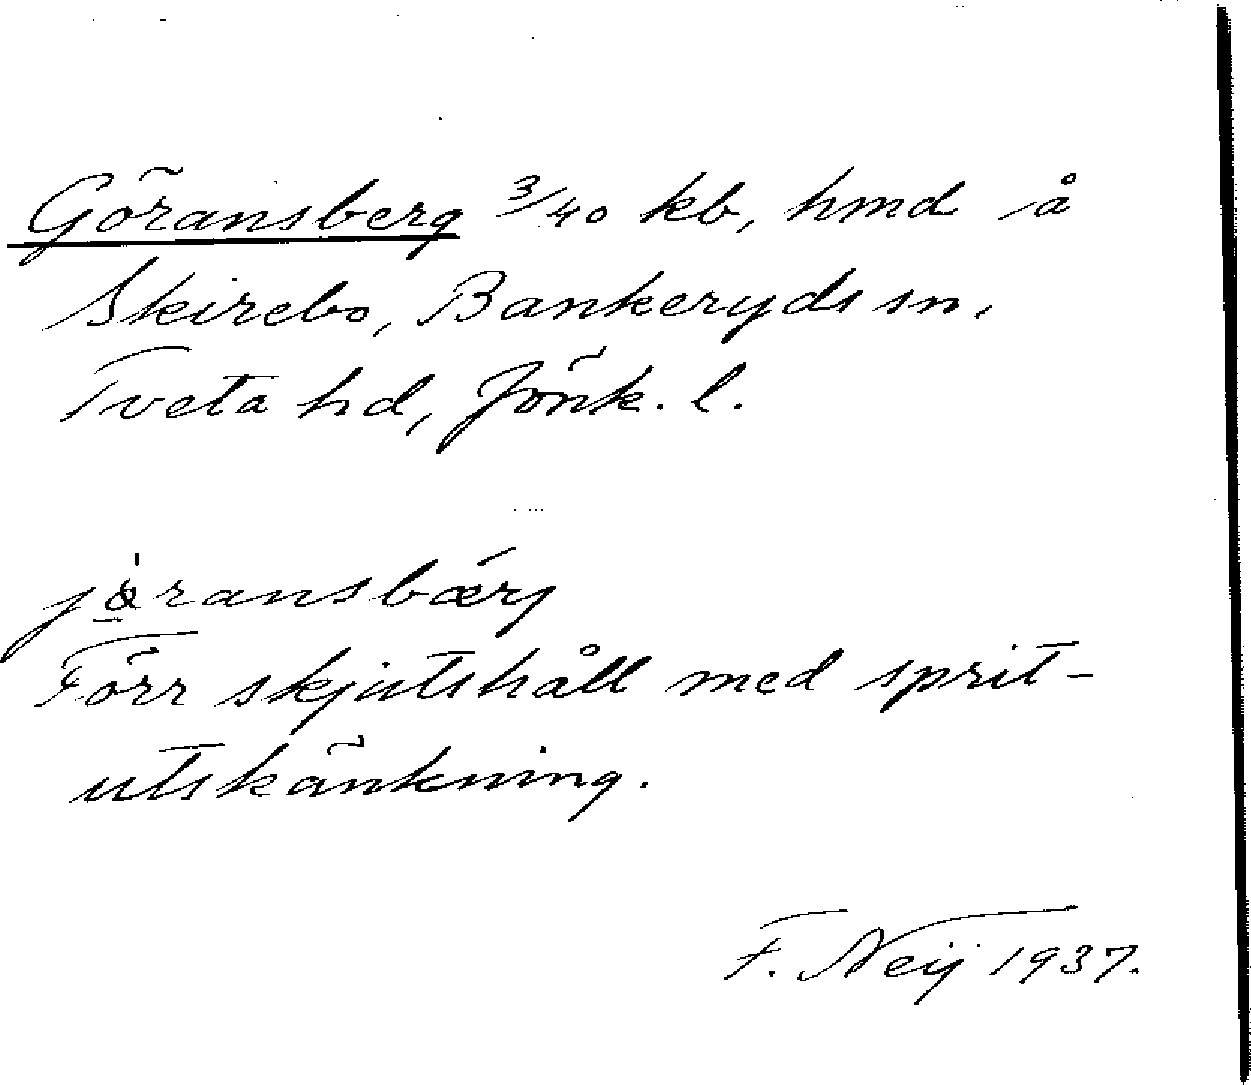 Göransberg 3/40 kb, hmd å
Skirebo, Bankeryds sn,
Tveta hd, Jönk. l.
Förr skjutshåll med sprit-
utskänkning.
F. Neij 1937.